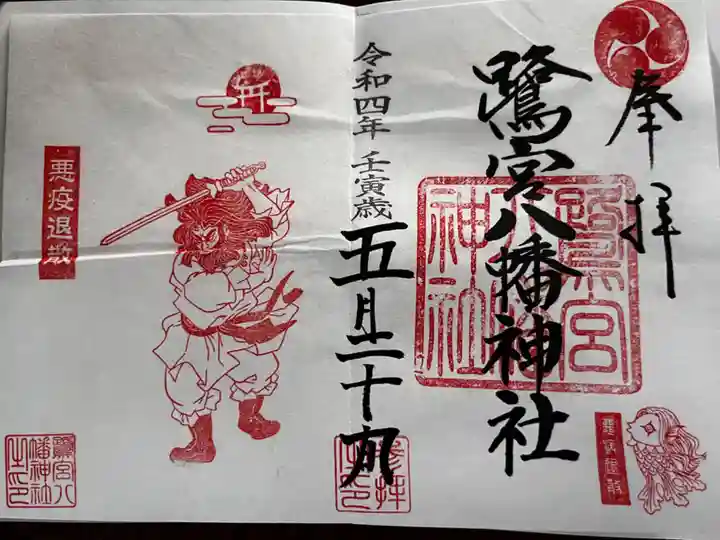 奉拝
鷺宮八幡神社
鷺宮八幡神社
悪疫退散
令和四年 壬寅歳
五月二十九
參拝之印
悪疫退散
鷺宮八幡神社之印